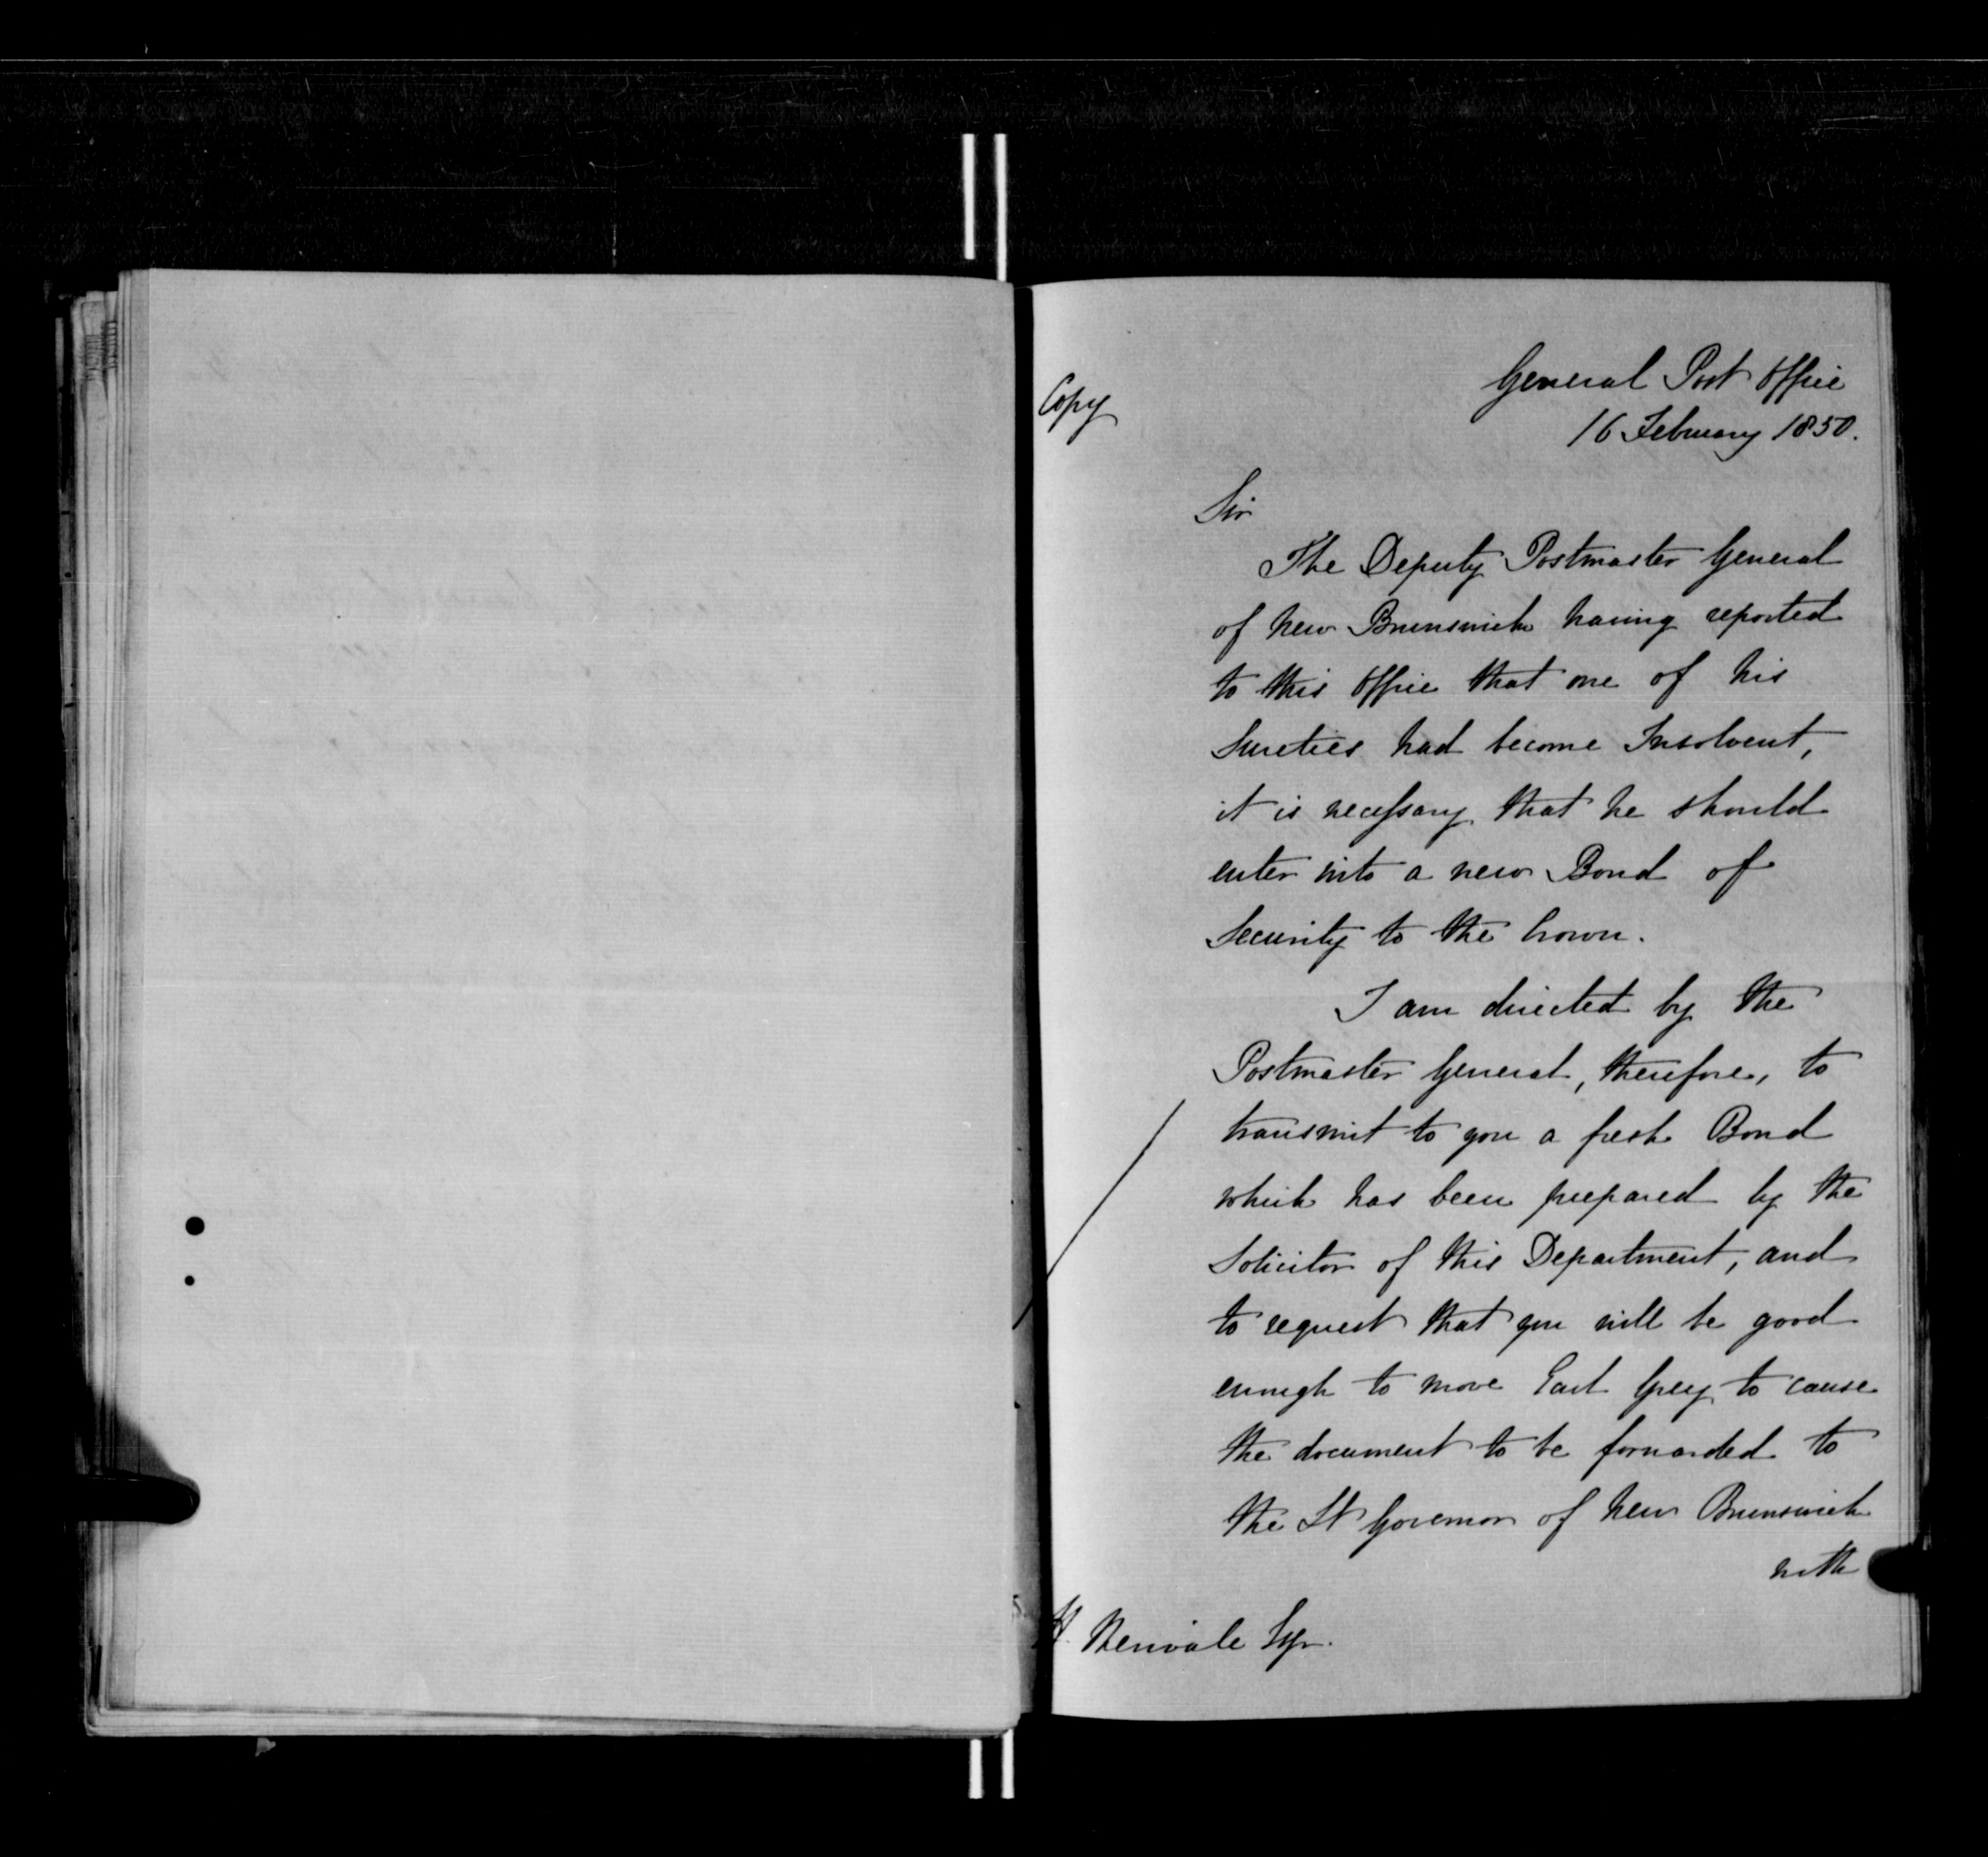 Copy
General Post Office
16 February 1850.
Sir
The Deputy Postmaster General
of New Brunswick having reported
to this Office that one of his
Sureties had become Insolvent,
it is necessary that he should
enter into a new Bond of
Security to the Crown.
I am directed by the
Postmaster General, therefore, to
transmit to you a fresh Bond
which has been prepared by the
Solicitor of this Department, and
to request that you will be good
enough to move Earl Grey to cause
the document to be forwarded to
the Lt Governor of New Brunswick
with
H. Merivale Esqr.